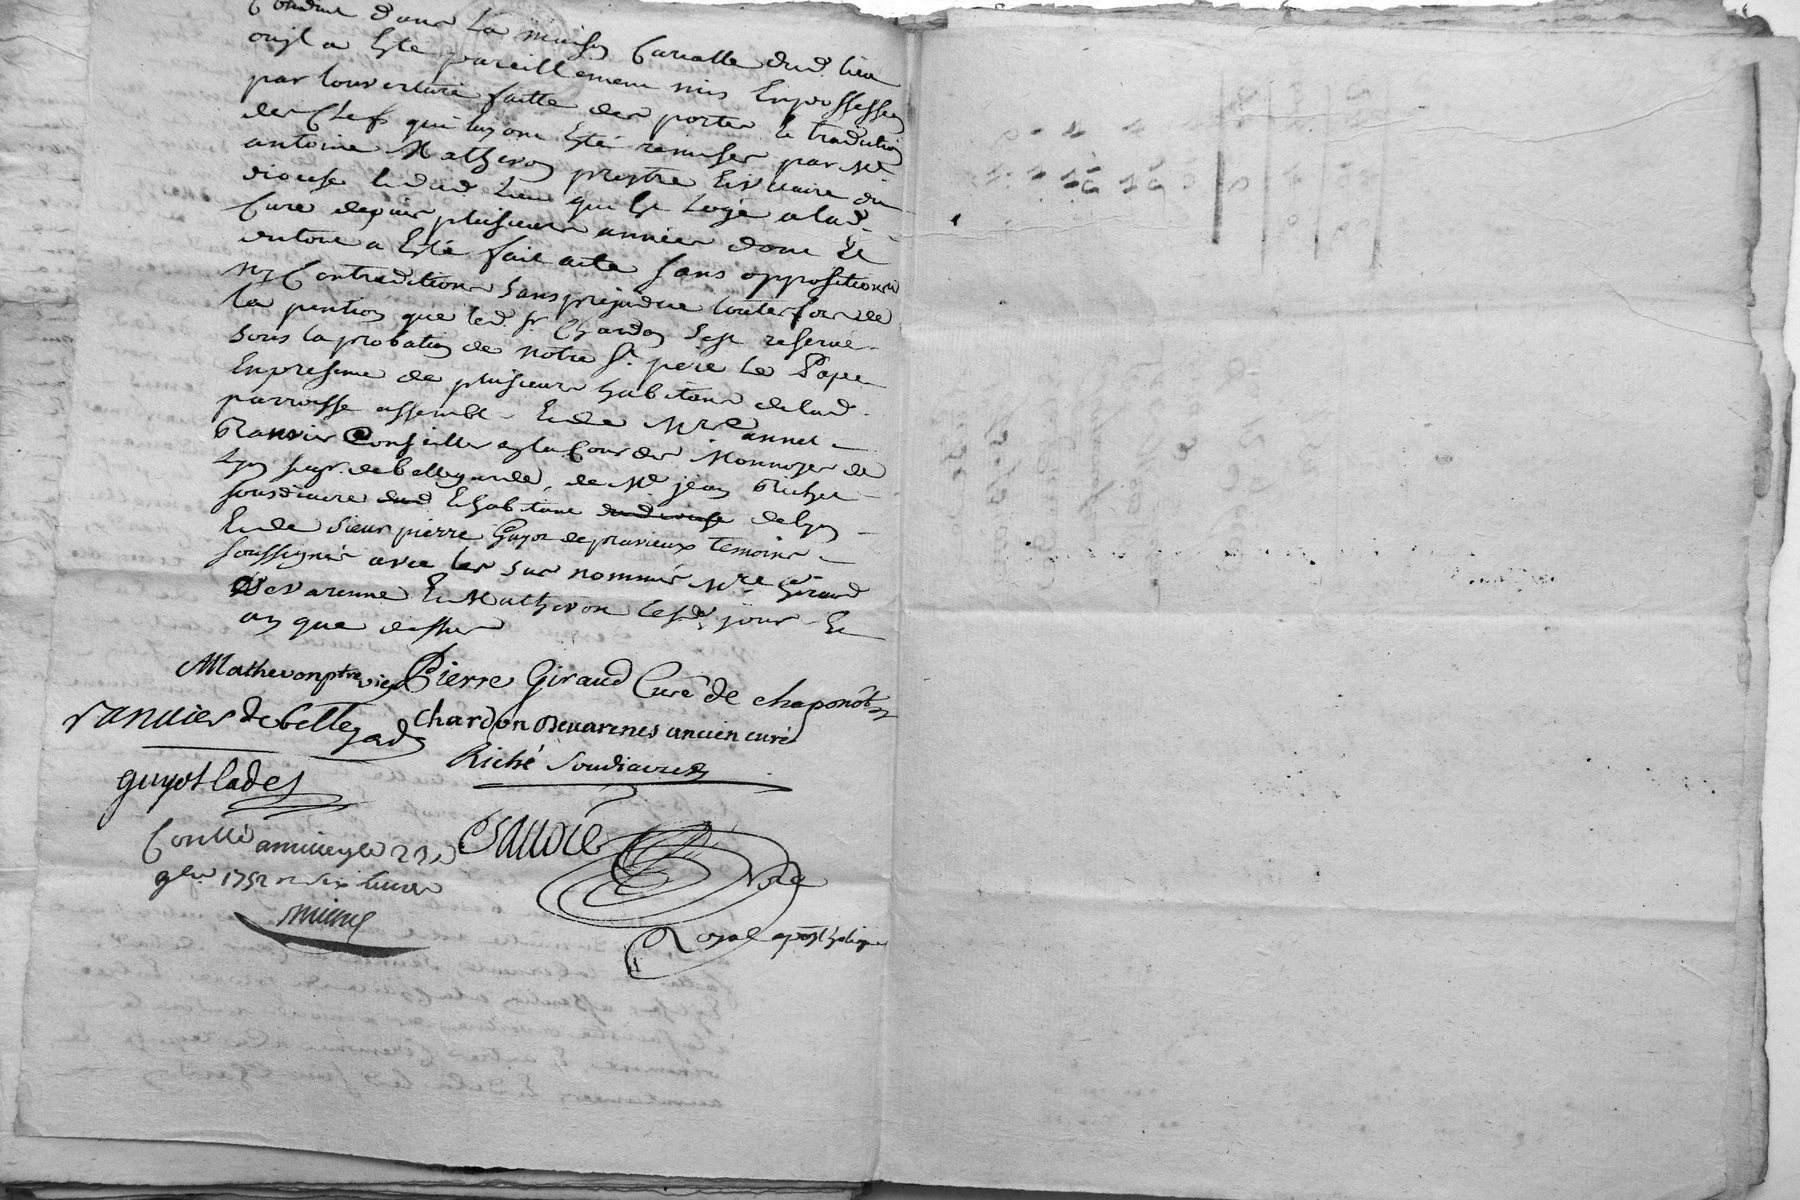 Conduit dans la maison Curialle dud. lieu
ou il a esté pareillement mis En possession
par louverture faitte des portes & tradition
des Clefs qui luy ont Esté remises par Mre
antoine Mathevon prestre Vicaire du
diocese & dud. Lieu qui Est Logé a lad.
Cure depuis plusieurs années dont Et
du tout a Esté fait acte sans opposition
ny Contradiction sans prejudice touttefois de
la pention que led. Sr. Chardon s'est reservé
sous laprobation de notre St. pere Le Pape
En presence de plusieurs habitans de lad.
parroisse assemblé Et de Mre annet
Ranvier Conseiller en la Cour des Monnoyes de
Lyon seigr. de bellegarde, de Me jean Richer
sousdiacre dud Et habitant dud diocese de lyon
Et de sieur pierre Guyot de pravieux temoins
soussignés avec les sus nommés Mres Giraud
Devarenne Et Mathevon lesd. jour Et
an que dessus
Mathevon ptre vic Pierre Giraud Curé de chaponost
ranvier de bellegarde Chardon Devarenes ancien curé
Riché Soudiacre
guyot lades
Conllé a 23
9bre 1752 six livres
Savoie
Nore
Royal apostholique